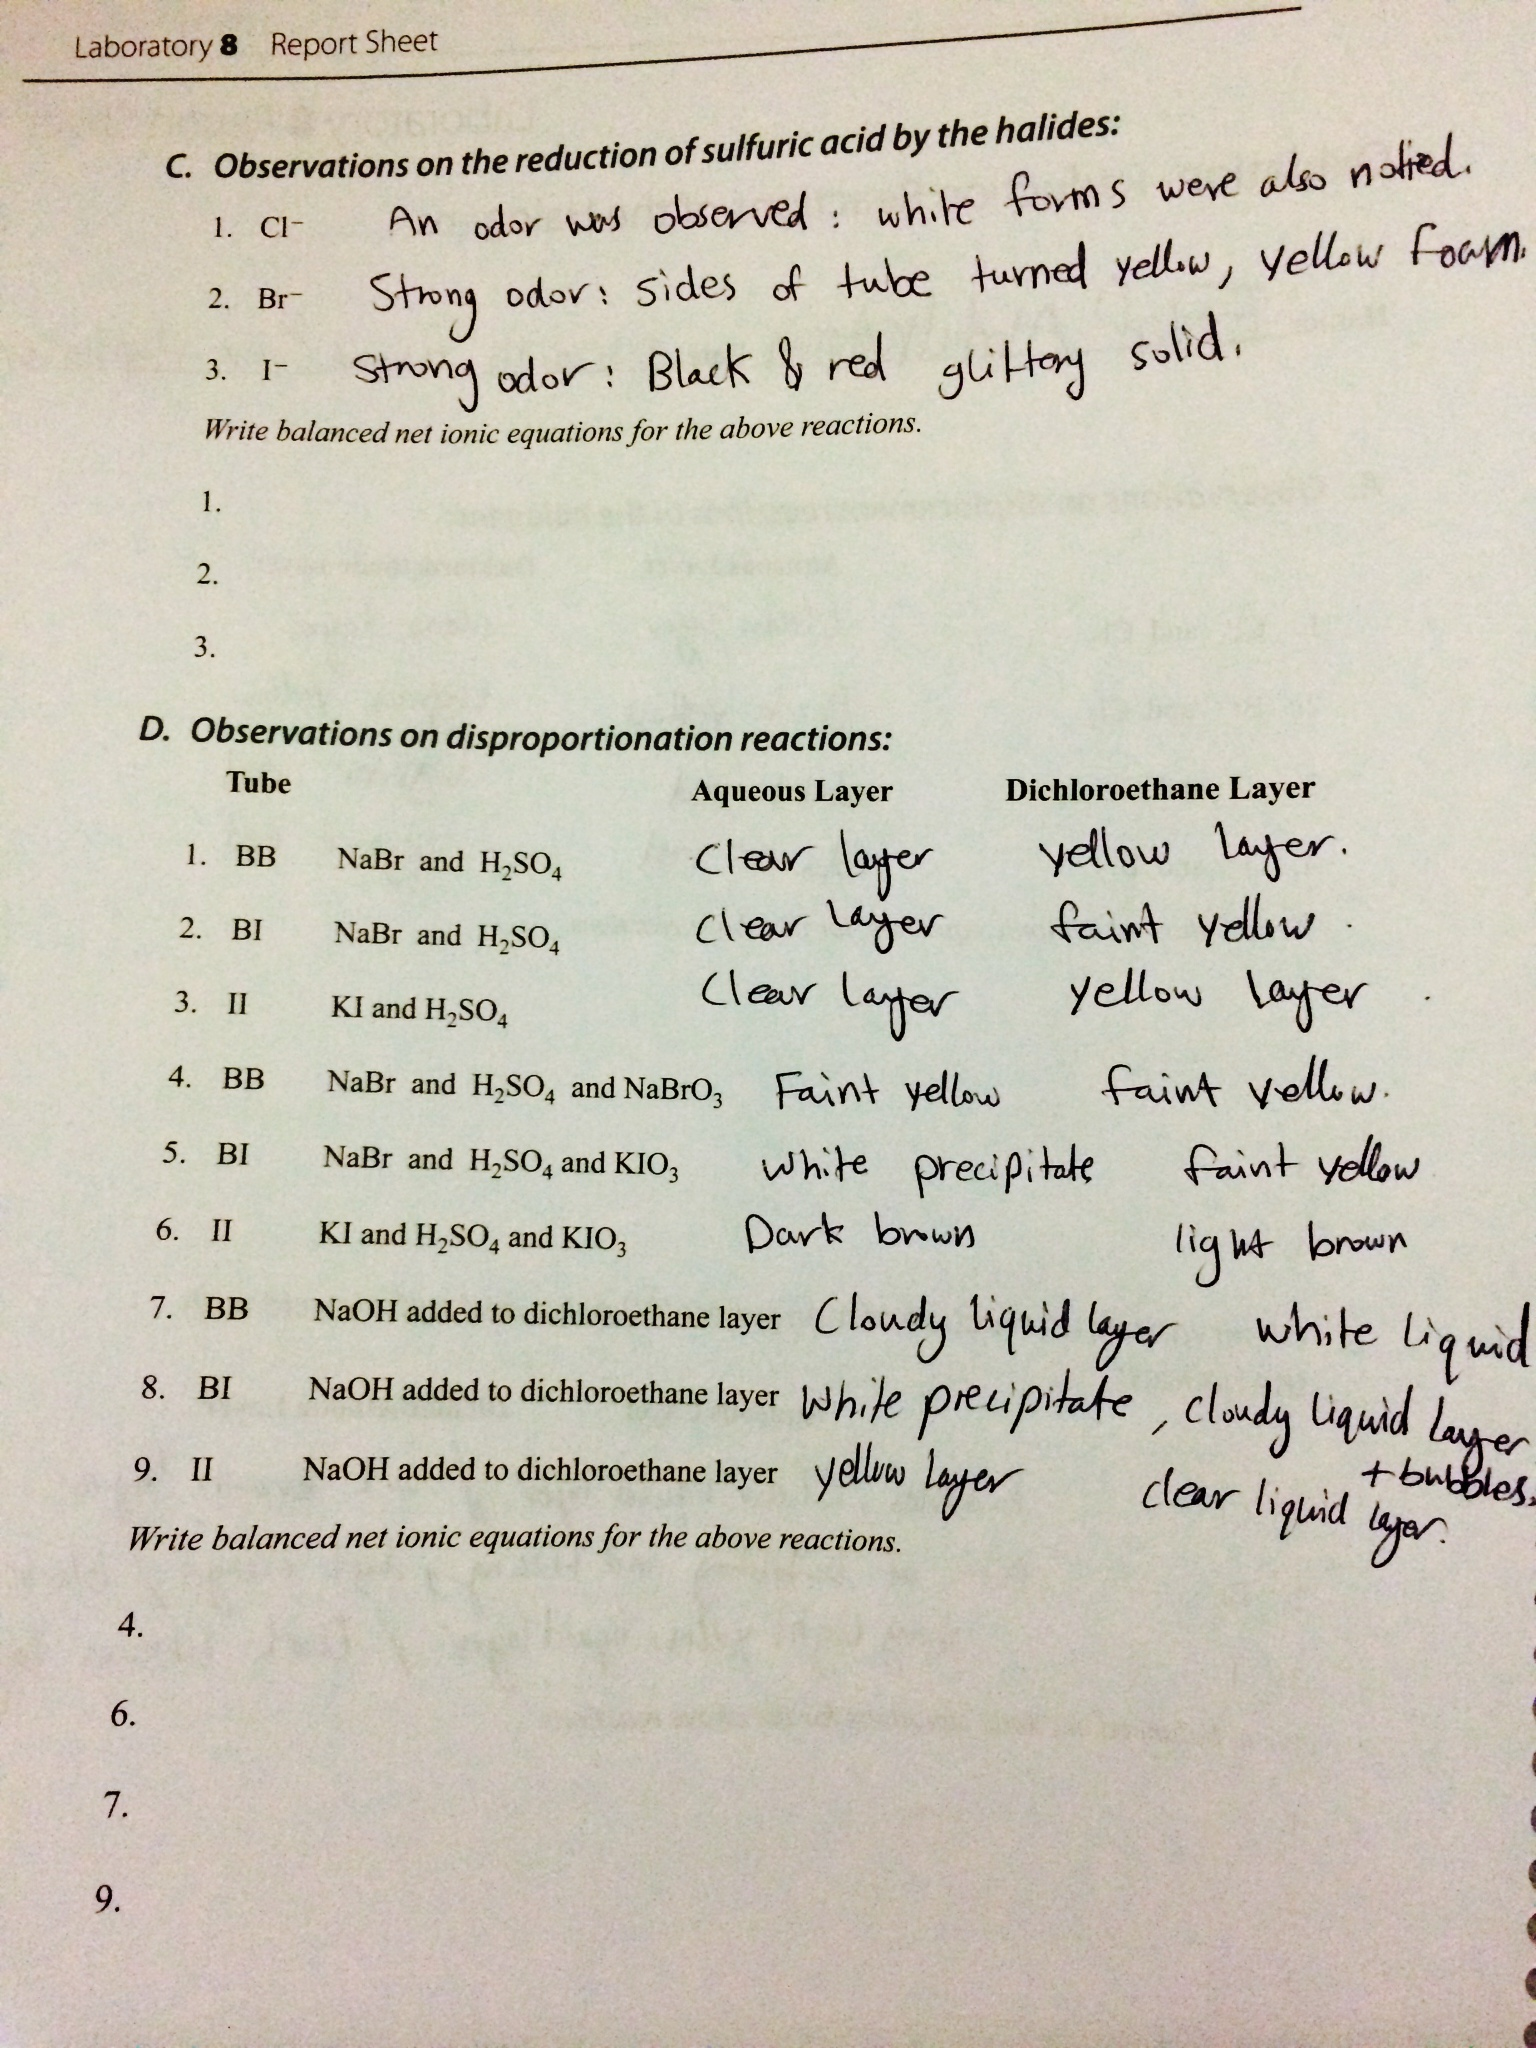 Laboratory 8 Report Sheet
C. Observations on the reduction of sulfuric acid by the halides:
1. Cl⁻ An odor was observed : white forms were also notied.
2. Br⁻ Strong odor: sides of tube turned yellow, yellow foam.
3. I⁻ Strong odor: Black & red glittery solid.
Write balanced net ionic equations for the above reactions.
1.
2.
3.
D. Observations on disproportionation reactions:
Tube Aqueous Layer Dichloroethane Layer
1. BB NaBr and H₂SO₄ Clear layer yellow layer.
2. BI NaBr and H₂SO₄ clear layer faint yellow.
3. II KI and H₂SO₄ Clear layer yellow layer.
4. BB NaBr and H₂SO₄ and NaBrO₃ Faint yellow faint yellow.
5. BI NaBr and H₂SO₄ and KIO₃ white precipitate faint yellow
6. II KI and H₂SO₄ and KIO₃ Dark brown light brown
7. BB NaOH added to dichloroethane layer Cloudy liquid layer white liquid
8. BI NaOH added to dichloroethane layer White precipitate, cloudy liquid layer
+ bubbles.
9. II NaOH added to dichloroethane layer yellow layer clear liquid layer.
Write balanced net ionic equations for the above reactions.
4.
6.
7.
9.